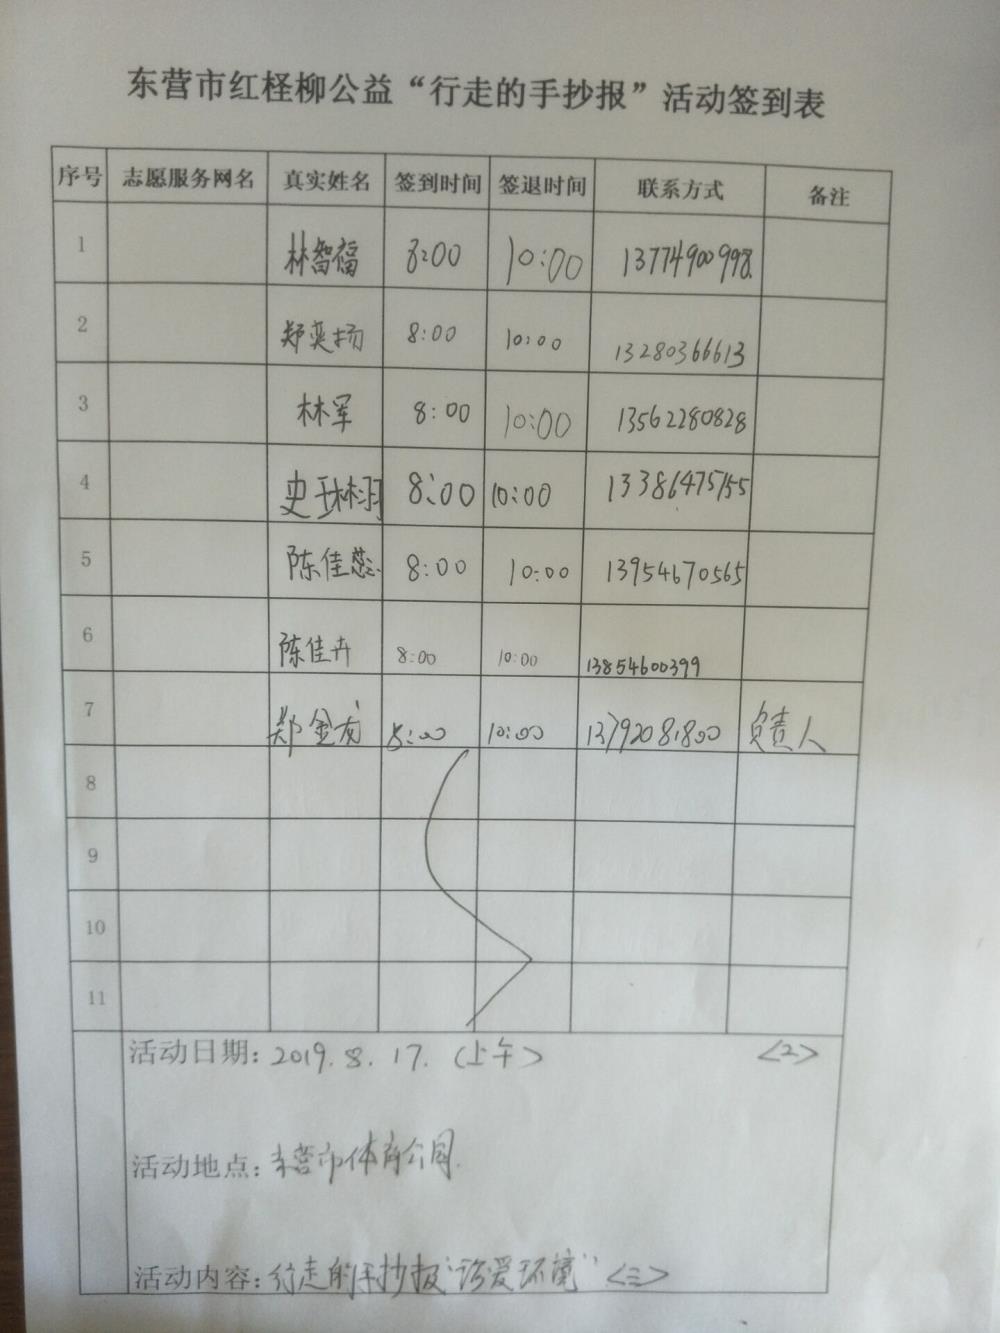 东营市红柽柳公益“行走的手抄报”活动签到表
序号 志愿服务网名 真实姓名 签到时间 签退时间 联系方式 备注
1 林智福 8:00 10:00 13774900998
2 郑奕扬 8:00 10:00 13280366613
3 林军 8:00 10:00 13562280828
4 8:00 10:00 13386475155
5 陈佳蕊 8:00 10:00 13954670565
6 陈佳卉 8:00 10:00 13854600399
7 郑金龙 8:00 10:00 13792081800 负责人
8
9
10
11
活动日期: 2019.8.17.(上午) <2>
活动地点: 东营市体育公园.
活动内容: 行走的手抄报“珍爱环境” <三>